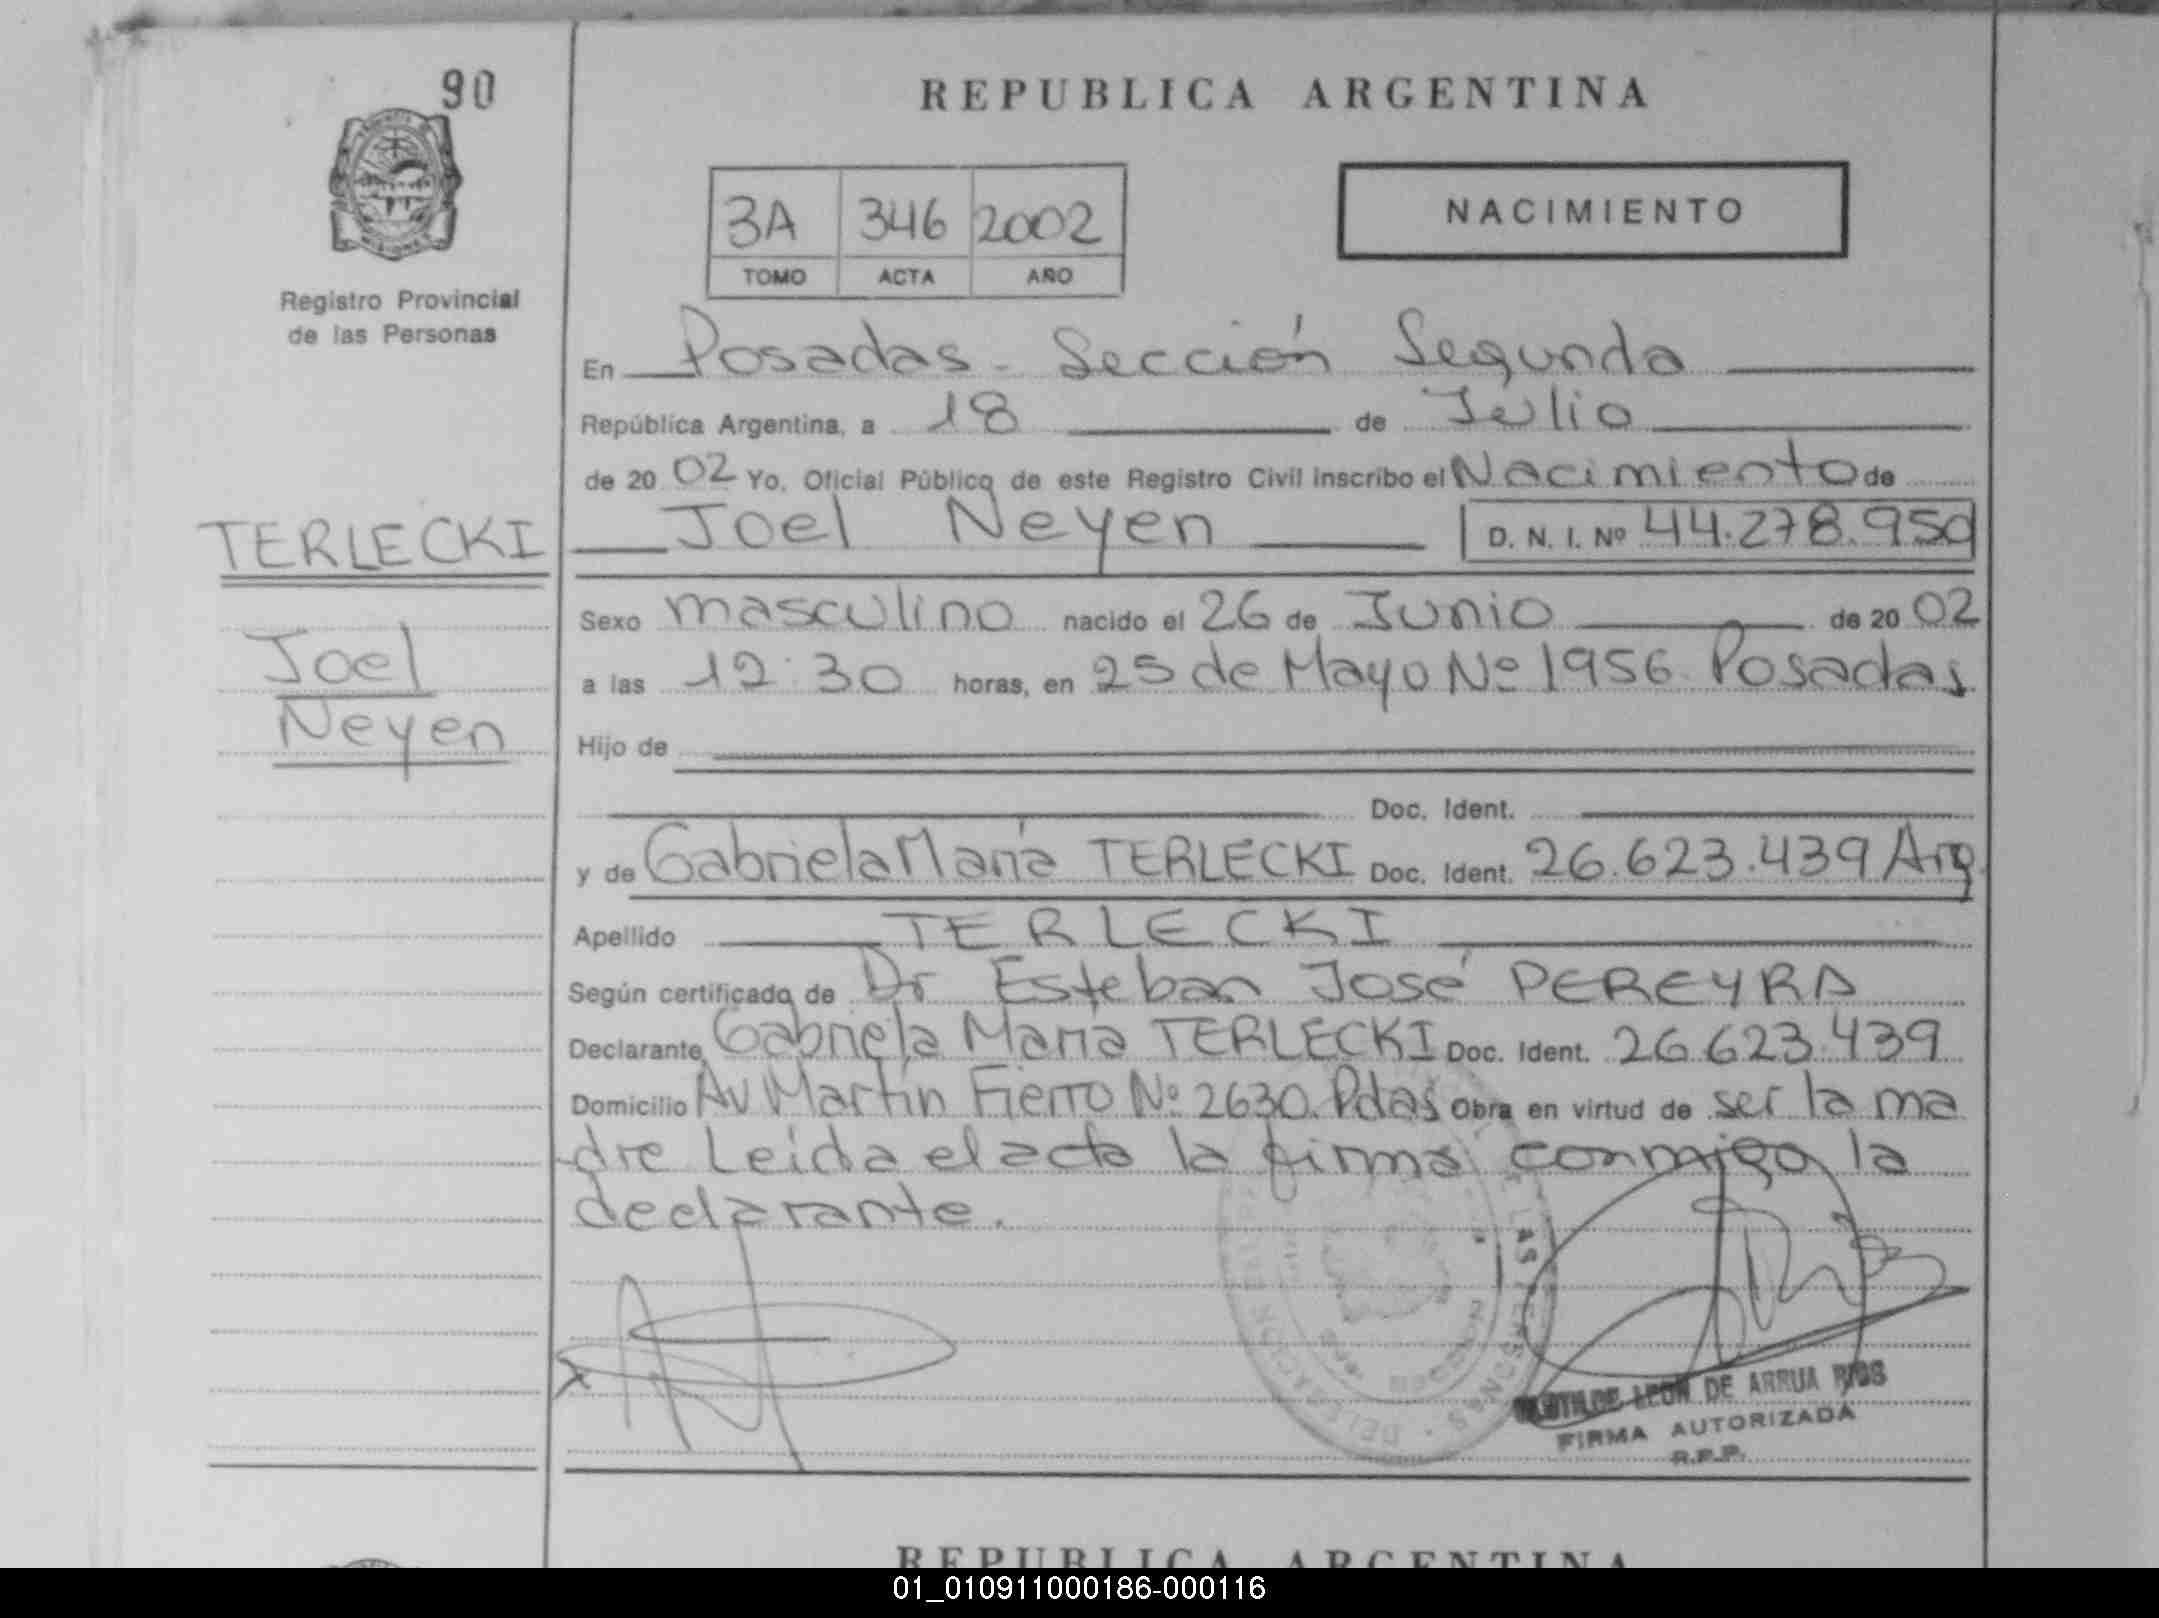 90
REPUBLICA ARGENTINA
3A 346 2002
TOMO ACTA AÑO
NACIMIENTO
Registro Provincial
de las Personas
En Posadas - Sección Segunda
República Argentina, a 18 de Julio
de 20 02 Yo, Oficial Público de este Registro Civil inscribo el Nacimiento de
TERLECKI
Joel Neyen D. N. I. Nº 44.278.950
Sexo masculino nacido el 26 de Junio de 20 02
Joel
a las 12:30 horas, en 25 de Mayo Nº 1956. Posadas
Neyen
Hijo de
Doc. Ident.
y de Gabriela María TERLECKI Doc. Ident. 26.623.439 Arg
Apellido TERLECKI
Según certificado de Dr Esteban José PEREYRA
Declarante Gabriela Maria TERLECKI Doc. Ident. 26.623.439
Domicilio Av Martín Fierro Nº 2630. Pdas Obra en virtud de ser la ma
dre Leída el acta la firma conmigo la
declarante.
LEON DE ARRUA RIOS
FIRMA AUTORIZADA
R.P.P.
REPUBLICA ARGENTINA
01_010911000186-000116